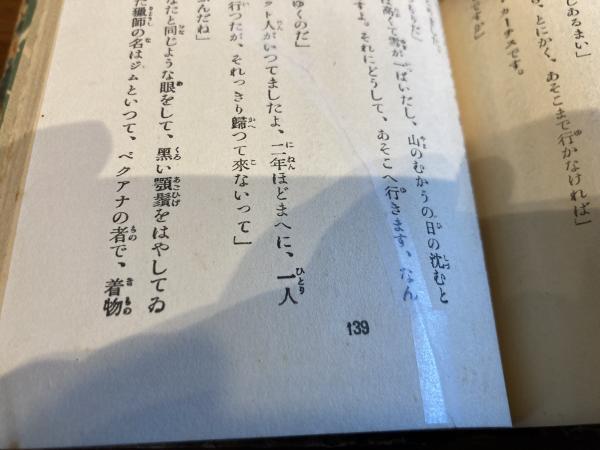 じあるまい」
、とにかく、あそこまで行かなければ」
カーナスです。
ですが」
高くて雪が一ぱいだし、山のむかうの日の沈むと
すよ。それにどうして、あそこへ行きます、なん
ゆくのだ」
クト人がいつてましたよ、二年ほどまへに、一人
行つたが、それつきり歸つて來ないつて」
んだね」
なたと同じような眼をして、黒い顎鬚をはやしてゐ
た獵師の名はジムといつて、ペクアナの者で、着物
139